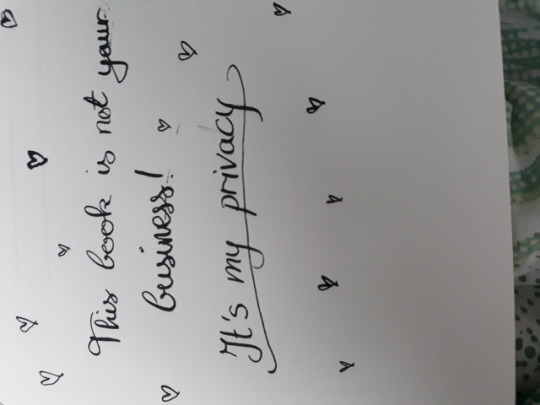 This book is not your
business!
It's my privacy